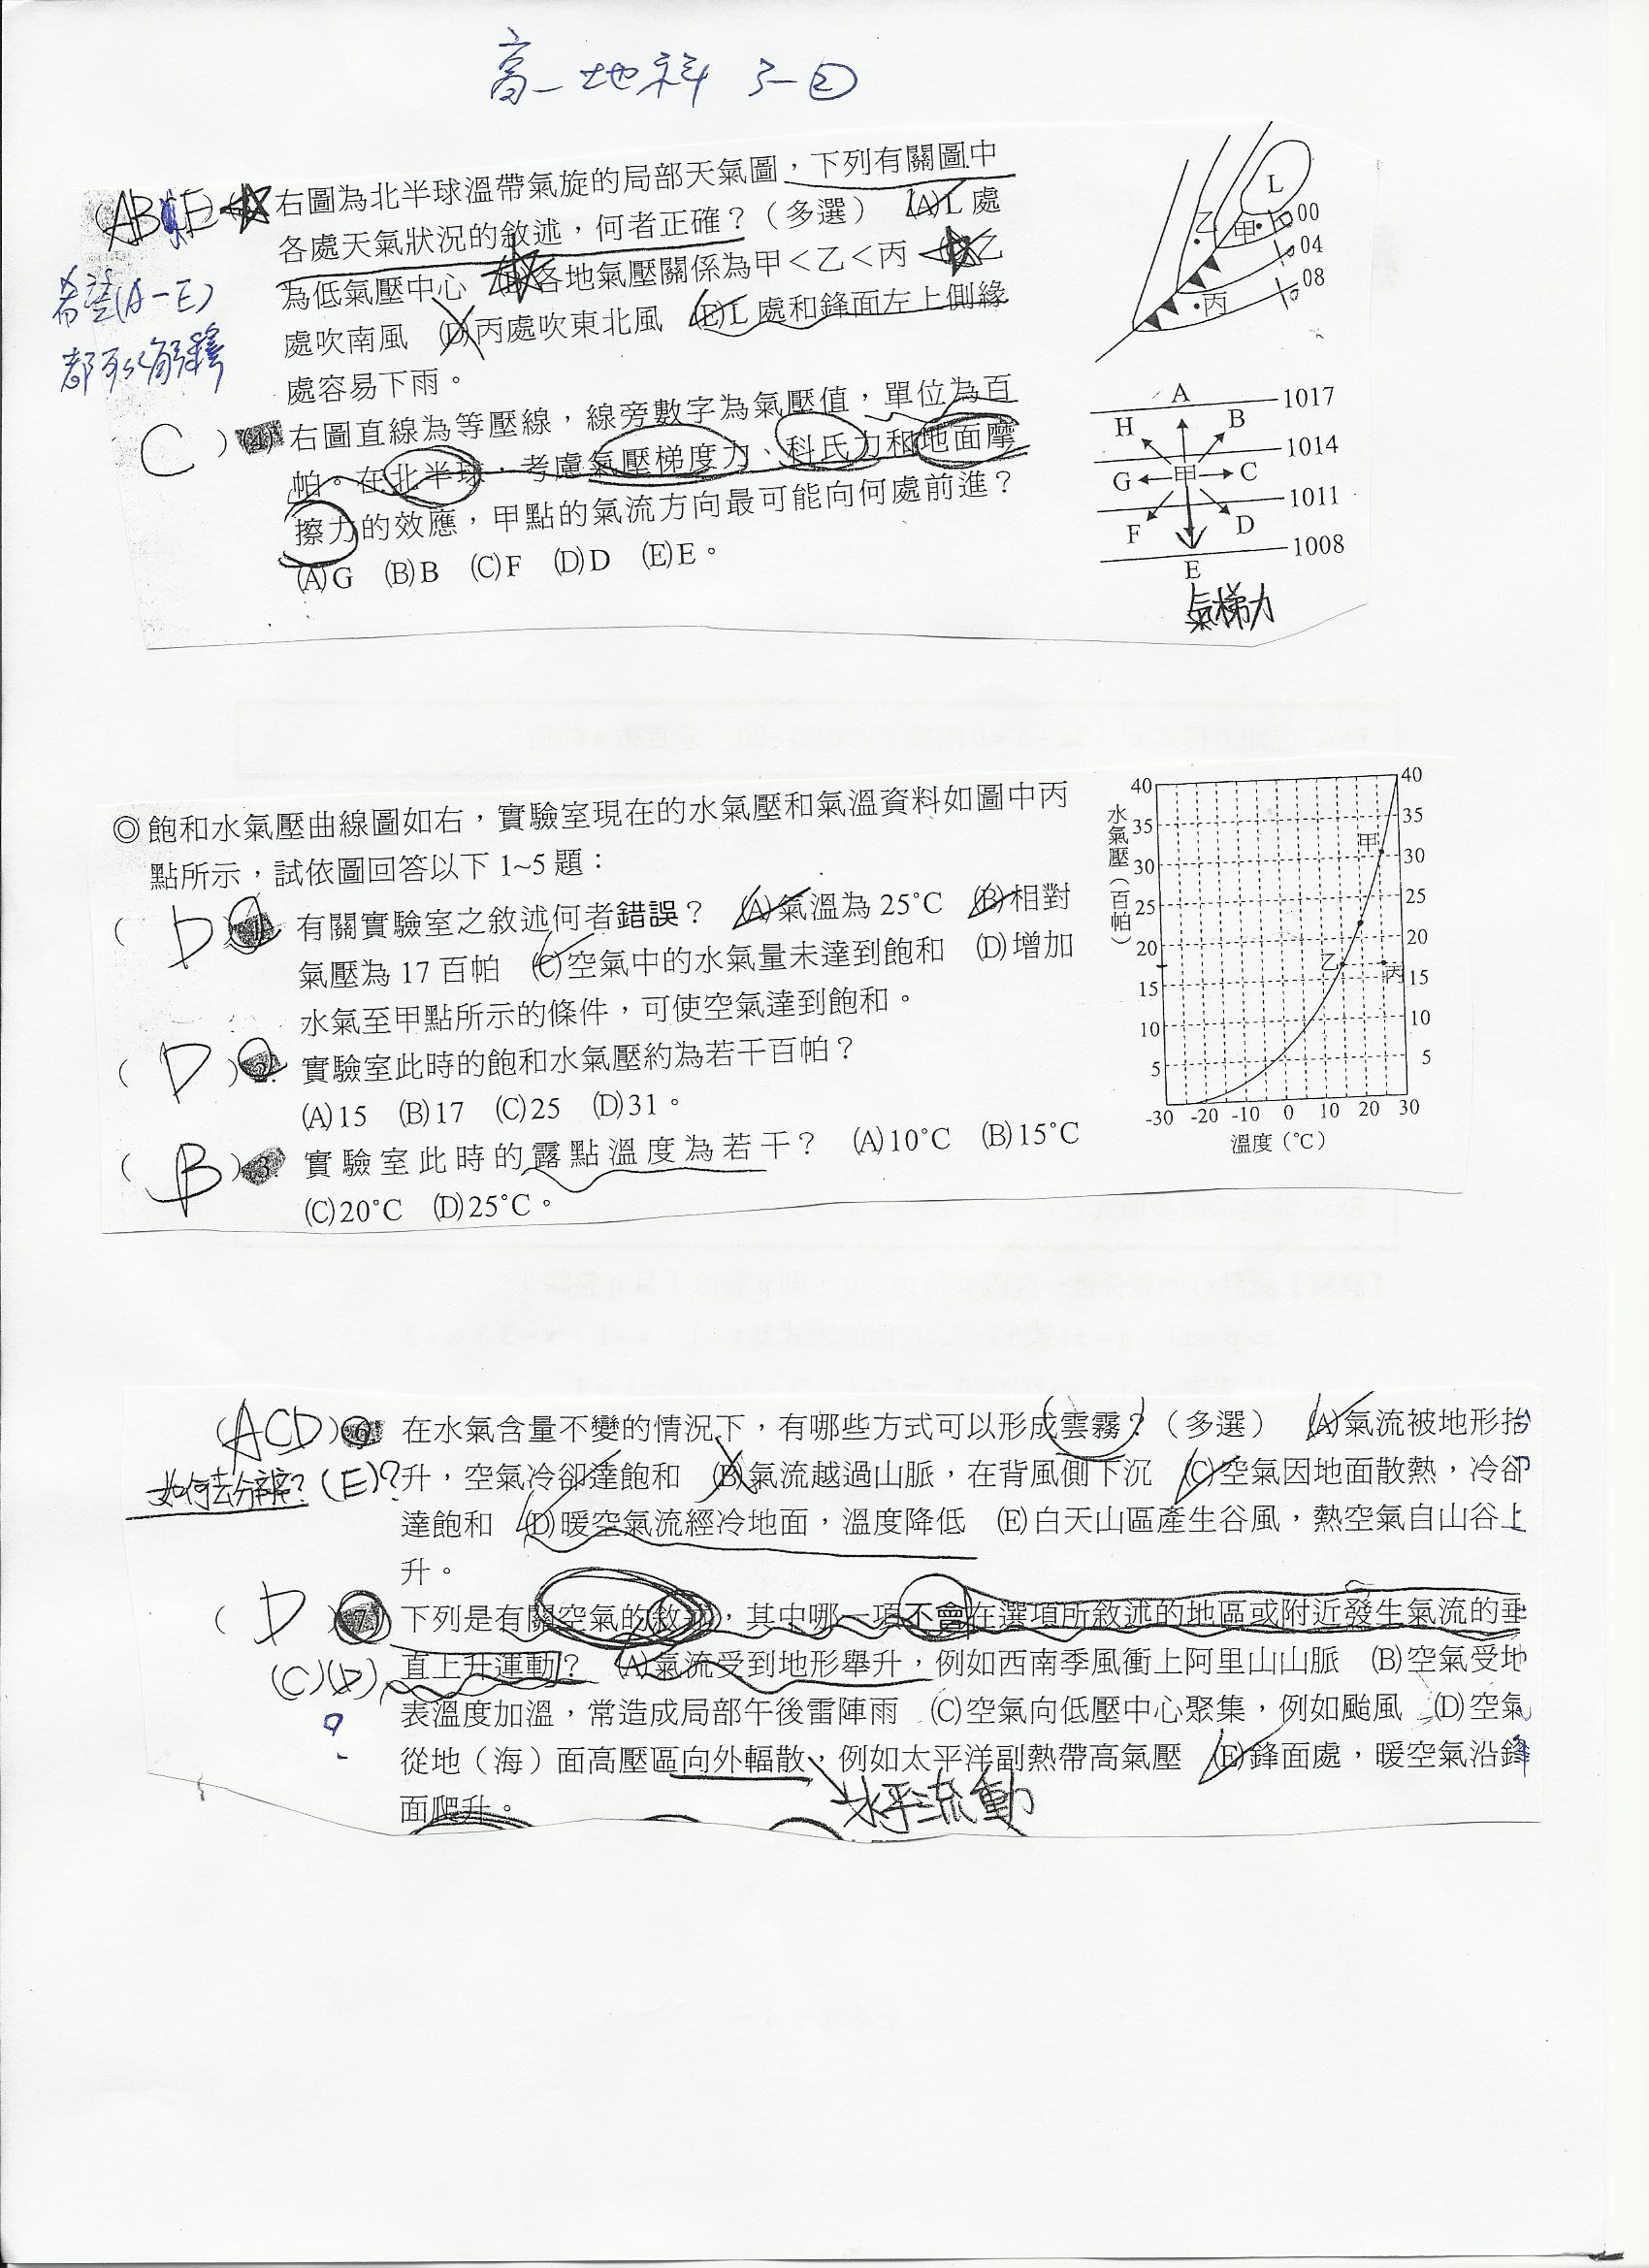 高一地科 3-②
(ABE)
右圖為北半球溫帶氣旋的局部天氣圖，下列有關圖中
各處天氣狀況的敘述，何者正確？（多選） (A)L 處
為低氣壓中心 各地氣壓關係為甲＜乙＜丙 乙
處吹南風 (D)丙處吹東北風 (E)L 處和鋒面左上側緣
處容易下雨。
希望(A-E)
都可以解釋
L
乙
甲
丙
00
04
08
C ) (4) 右圖直線為等壓線，線旁數字為氣壓值，單位為百
帕。在北半球，考慮氣壓梯度力、科氏力和地面摩
擦力的效應，甲點的氣流方向最可能向何處前進？
(A)G (B)B (C)F (D)D (E)E。
A
1017
H
B
1014
G
甲
C
1011
F
D
1008
E
氣梯力
◎飽和水氣壓曲線圖如右，實驗室現在的水氣壓和氣溫資料如圖中丙
點所示，試依圖回答以下 1~5 題：
( D ) 1. 有關實驗室之敘述何者錯誤？ (A)氣溫為 25°C (B)相對
氣壓為 17 百帕 (C)空氣中的水氣量未達到飽和 (D)增加
水氣至甲點所示的條件，可使空氣達到飽和。
( D ) 2. 實驗室此時的飽和水氣壓約為若干百帕？
(A)15 (B)17 (C)25 (D)31。
( B ) 3. 實驗室此時的露點溫度為若干？ (A)10°C (B)15°C
(C)20°C (D)25°C。
水氣壓（百帕）
40
35
30
25
20
15
10
5
40
35
30
25
20
15
10
5
甲
乙
丙
-30 -20 -10 0 10 20 30
溫度（°C）
(ACD) 6. 在水氣含量不變的情況下，有哪些方式可以形成雲霧？（多選） (A)氣流被地形抬
如何去分辨? (E)?
升，空氣冷卻達飽和 (B)氣流越過山脈，在背風側下沉 (C)空氣因地面散熱，冷卻
達飽和 (D)暖空氣流經冷地面，溫度降低 (E)白天山區產生谷風，熱空氣自山谷上
升。
( D ) 7. 下列是有關空氣的敘述，其中哪一項不會在選項所敘述的地區或附近發生氣流的垂
(C)(D)
?
直上升運動？ (A)氣流受到地形舉升，例如西南季風衝上阿里山山脈 (B)空氣受地
表溫度加溫，常造成局部午後雷陣雨 (C)空氣向低壓中心聚集，例如颱風 (D)空氣
從地（海）面高壓區向外輻散，例如太平洋副熱帶高氣壓 (E)鋒面處，暖空氣沿鋒
面爬升。
水平流動